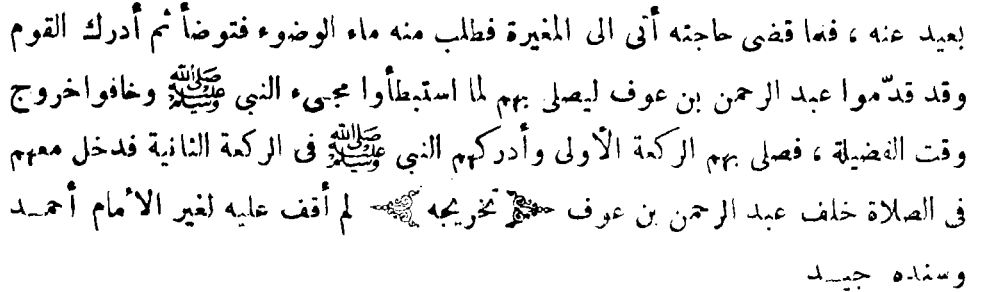 بعيد عنه ، فلما قضى حاجته أتى الى المغيرة فطلب منه ماء الوضوء فتوضأ ثم أدرك القوم
وقد قدّموا عبد الرحمن بن عوف ليصلى بهم لما استبطأوا مجىء النبى ﷺ وخافوا خروج
وقت الفضيلة ، فصلى بهم الركعة الأولى وأدركهم النبى ﷺ فى الركعة الثانية فدخل معهم
فى الصلاة خلف عبد الرحمن بن عوف ﴿ تخريجه ﴾ لم أقف عليه لغير الأمام أحمـد
وسنده جيـد